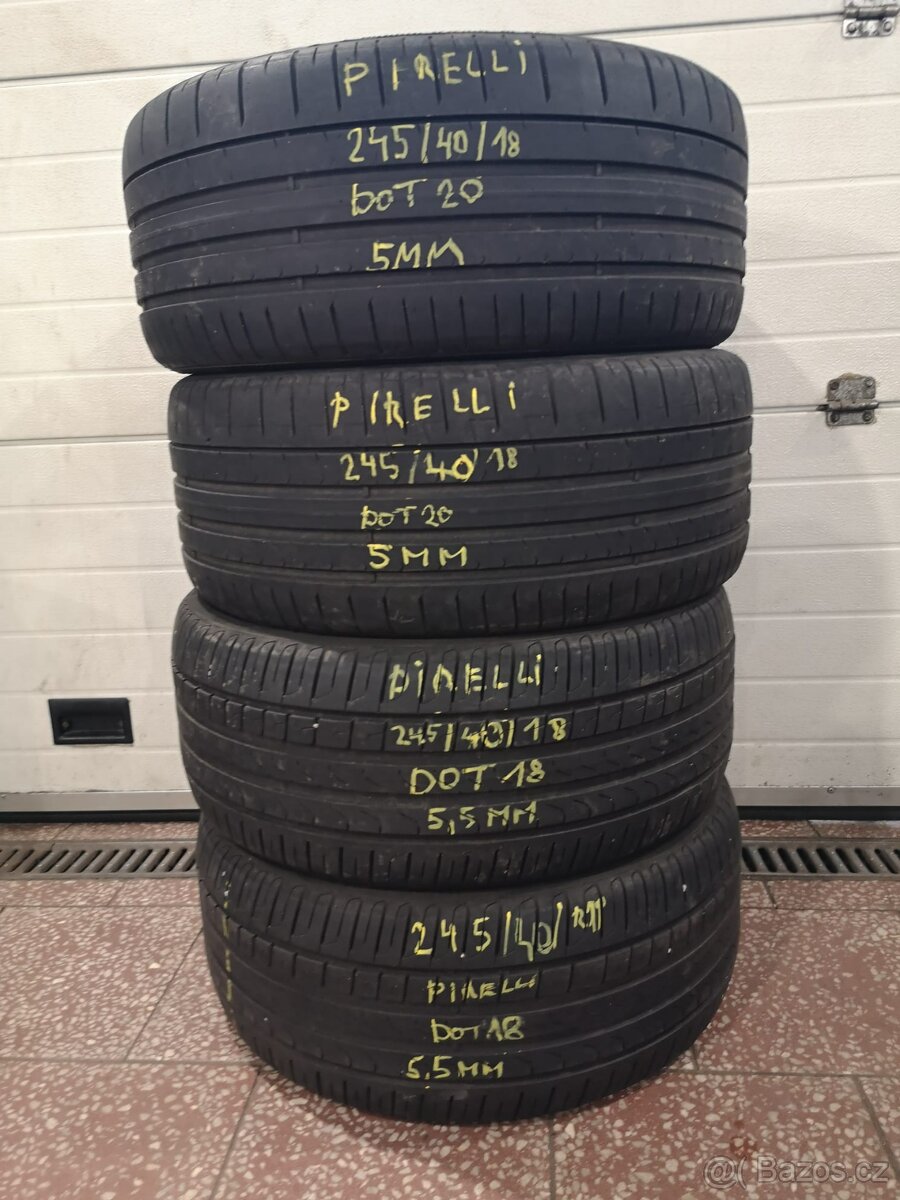 PIRELLI
245/40/18
DOT 20
5MM
PIRELLI
245/40/18
DOT 20
5MM
PIRELLI
245/40/18
DOT 18
5,5MM
245/40/
PIRELLI
DOT 18
5,5MM
@ Bazos.cz